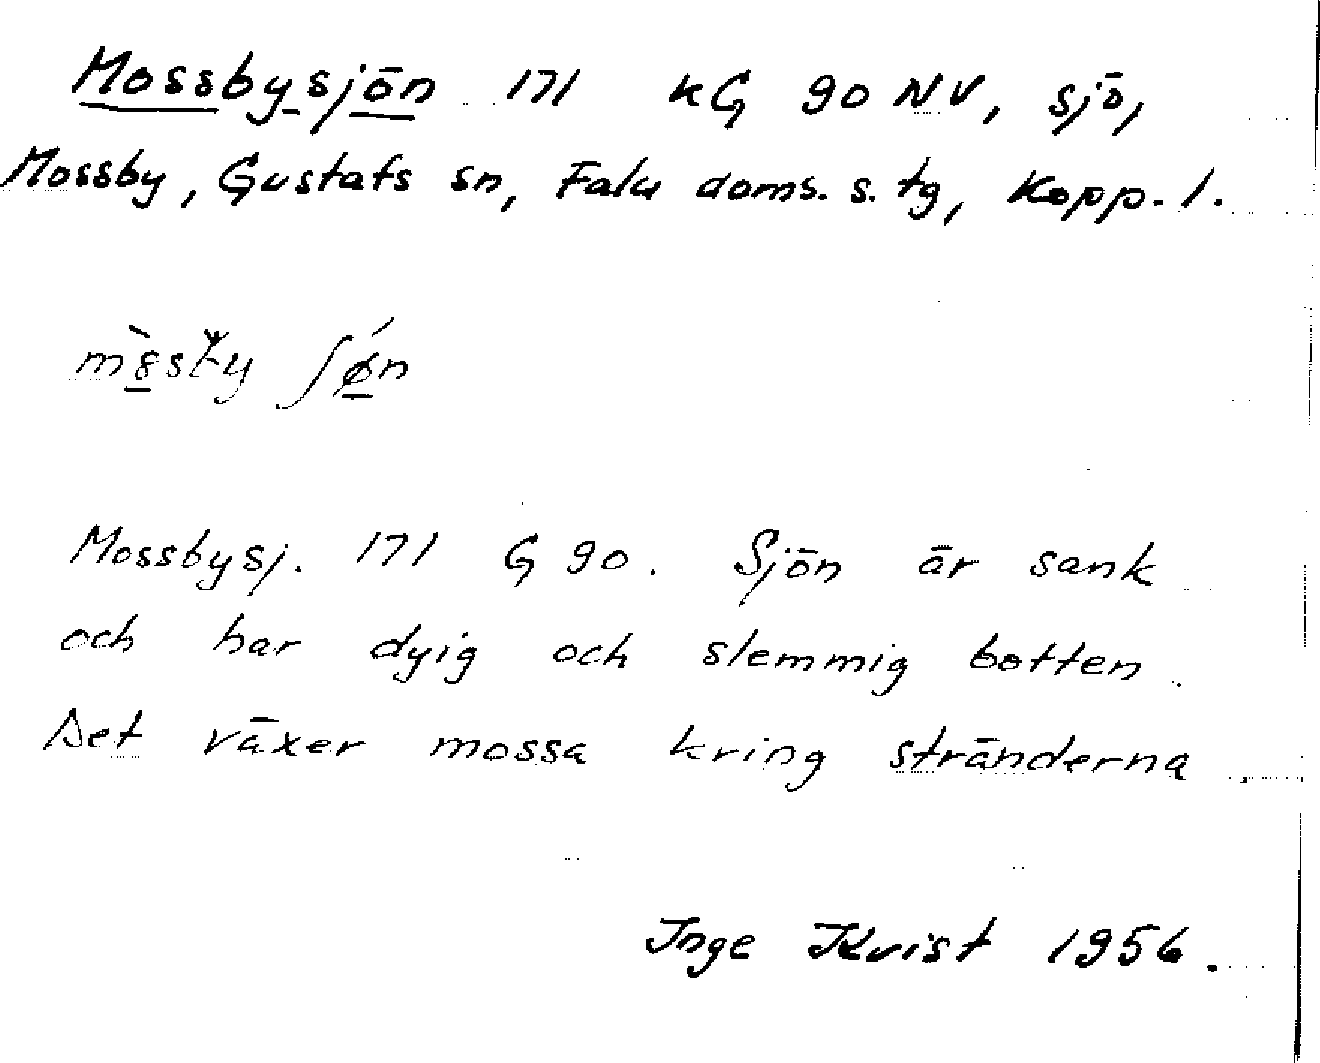 Mossbysjön 171 kG 90 NV, sjö,
Mossby, Gustafs sn, Falu doms. s. tg, Kopp. l.
Mossbysj. 171 G 90. Sjön är sank
och har dyig och slemmig botten.
Det växer mossa kring stränderna.
Inge Kvist 1956.